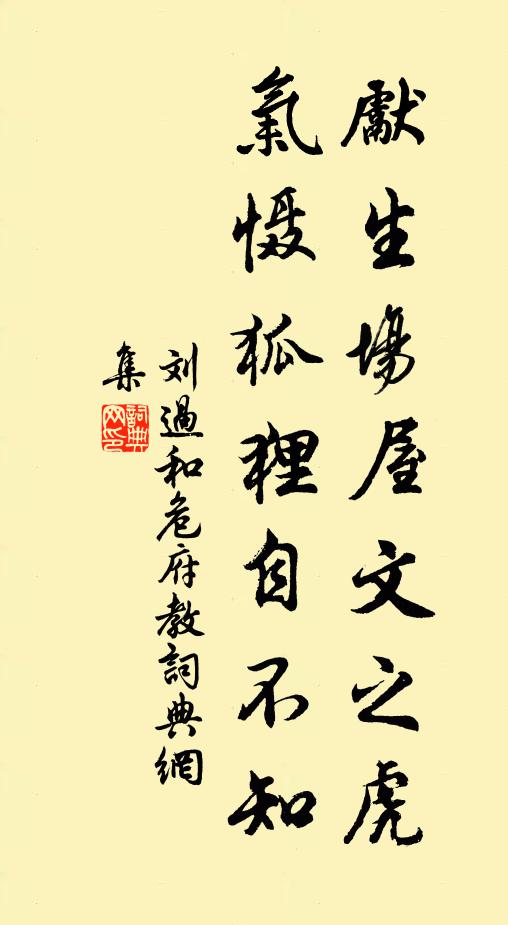 獻生場屋文之虎
氣慑狐狸自不知
刘過和危府教詞典網
集
詞典
网印